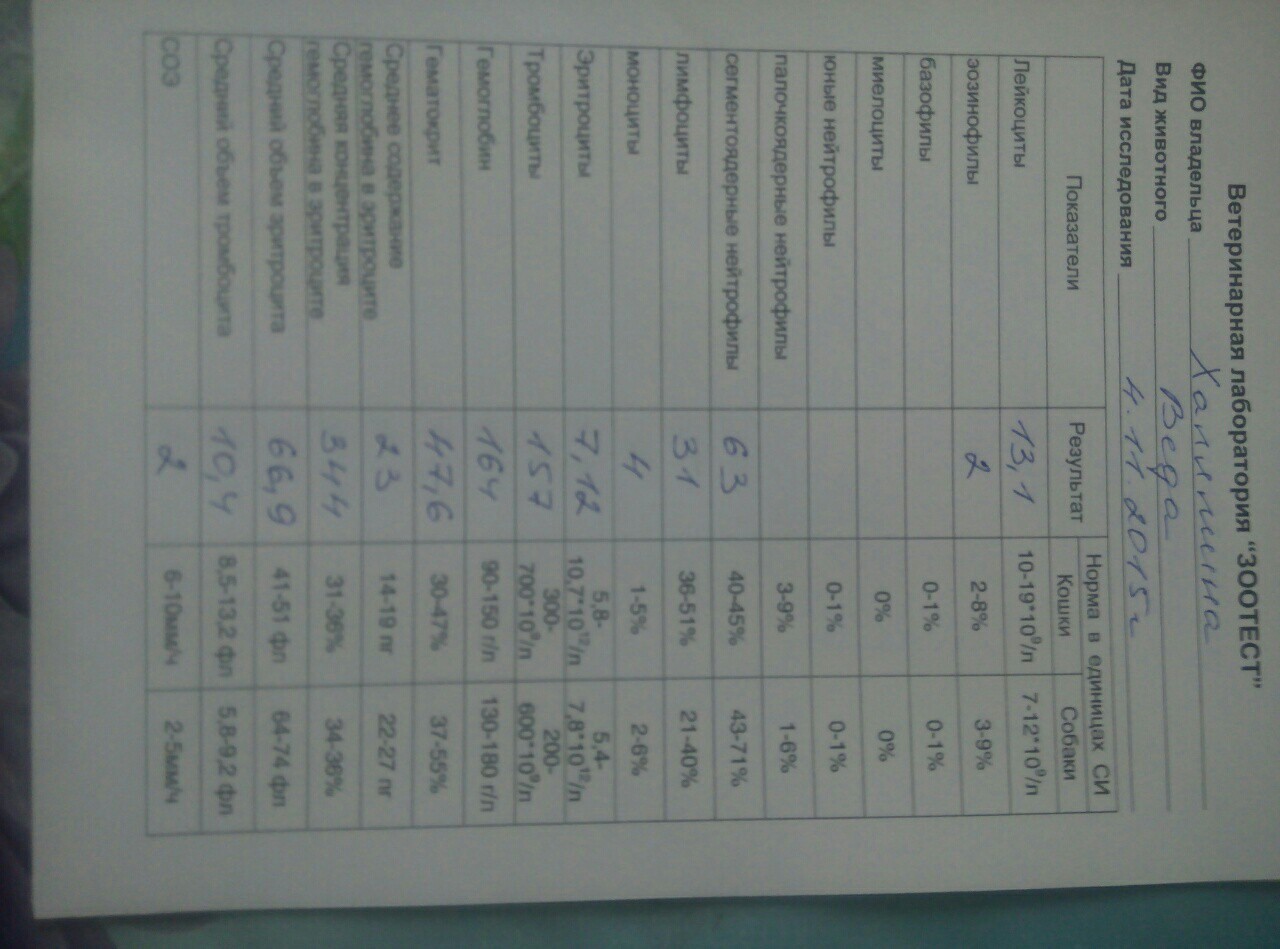 Ветеринарная лаборатория "ЗООТЕСТ"
ФИО владельца
Вид животного Веда
Дата исследования 4.11.2015г
Показатели Результат Норма в единицах СИ
Кошки Собаки
Лейкоциты 13,1 10-19*10⁹/л 7-12*10⁹/л
эозинофилы 2 2-8% 3-9%
базофилы 0-1% 0-1%
миелоциты 0% 0%
юные нейтрофилы 0-1% 0-1%
палочкоядерные нейтрофилы 3-9% 1-6%
сегментоядерные нейтрофилы 63 40-45% 43-71%
лимфоциты 31 36-51% 21-40%
моноциты 4 1-5% 2-6%
Эритроциты 7,12 5,8-10,7*10¹²/л 5,4-7,8*10¹²/л
Тромбоциты 157 300-700*10⁹/л 200-600*10⁹/л
Гемоглобин 164 90-150 г/л 130-180 г/л
Гематокрит 47,6 30-47% 37-55%
Среднее содержание гемоглобина в эритроците 23 14-19 пг 22-27 пг
Средняя концентрация гемоглобина в эритроците 344 31-36% 34-36%
Средний объем эритроцита 66,9 41-51 фл 64-74 фл
Средний объем тромбоцита 10,4 8,5-13,2 фл 5,8-9,2 фл
СОЭ 2 6-10мм/ч 2-5мм/ч